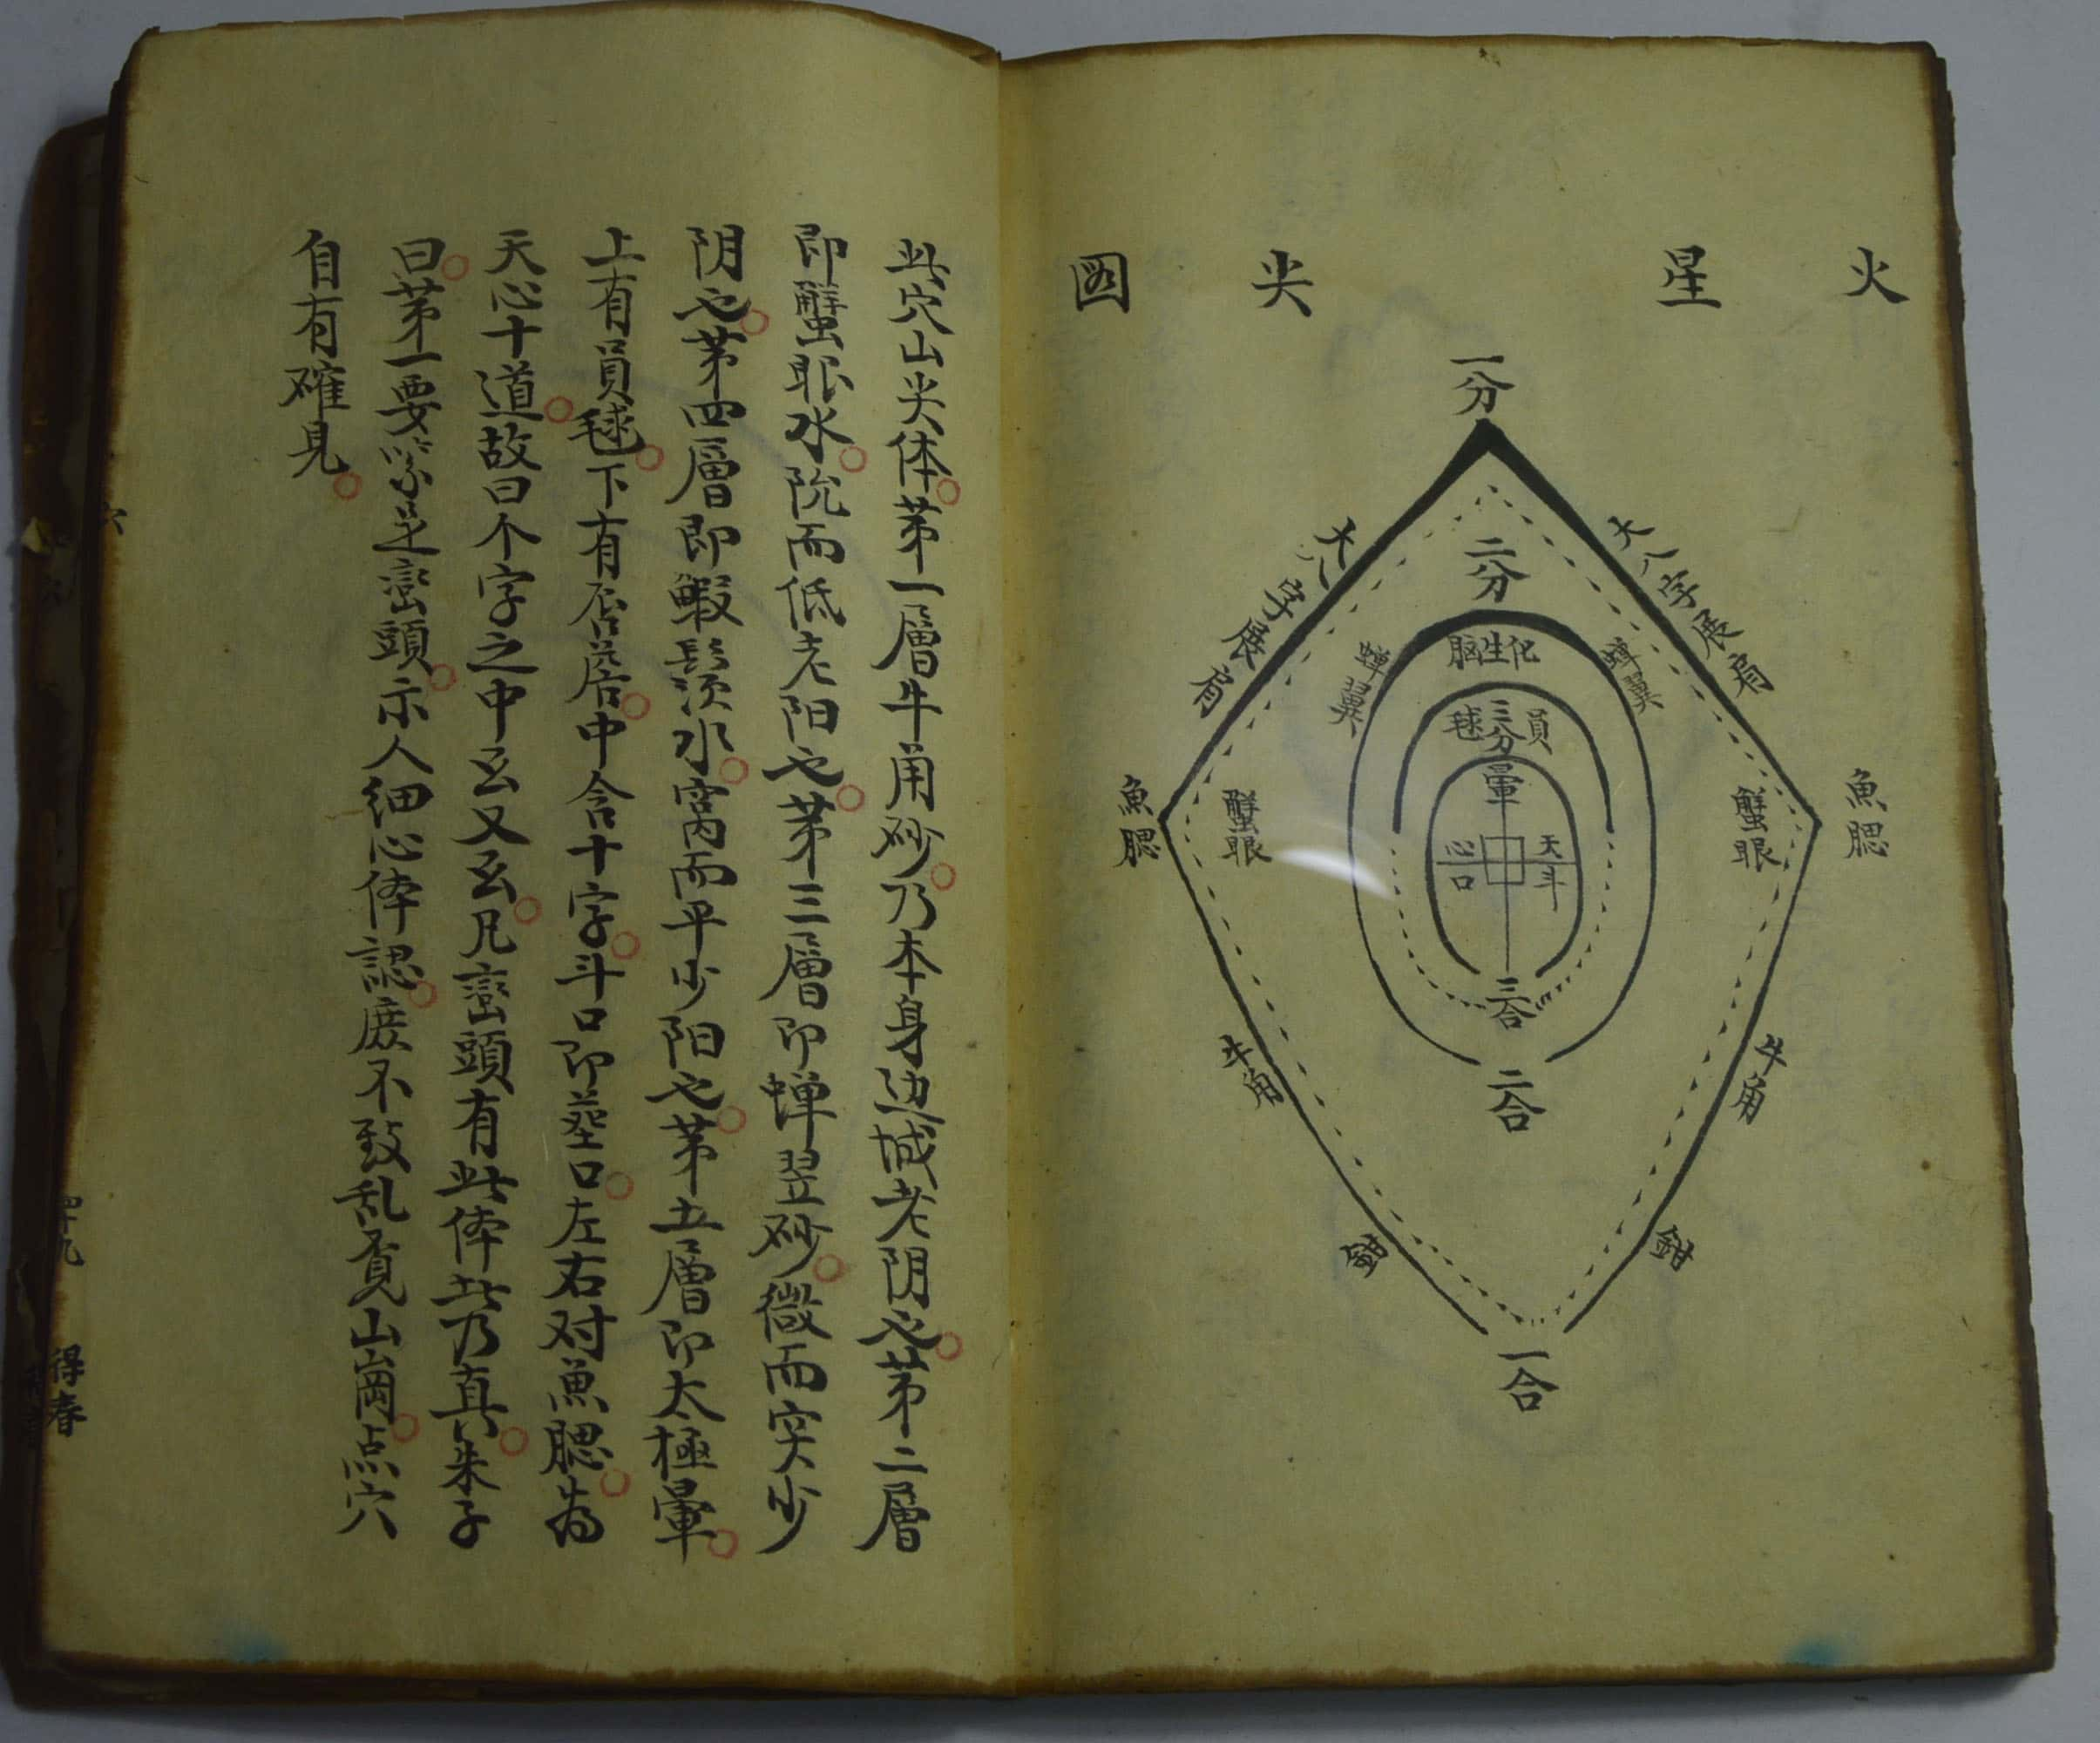 火星尖圖
一分
大八字展肩
大八字展肩
二分
蟬翼
蟬翼
化生脳
三分
員毬
暈
魚腮
魚腮
蟹眼
蟹眼
天心
斗口
三合
二合
牛角
牛角
鉗
鉗
一合
此穴山尖体第一層牛角砂乃本身边城老阴也第二層
即蟹眼水阬而低老阳也第三層即蟬翌砂微而突少
阴也第四層即蝦鬚水窝而平少阳也第五層即太極暈
上有員毬下有唇中含十字斗口即塟口左右对魚腮為
天心十道故曰个字之中玄又玄凡巒頭有此体此乃真朱子
曰第一要識巒頭示人細心体認庻不致乱看山崗点穴
自有確見
六
四十九
得春